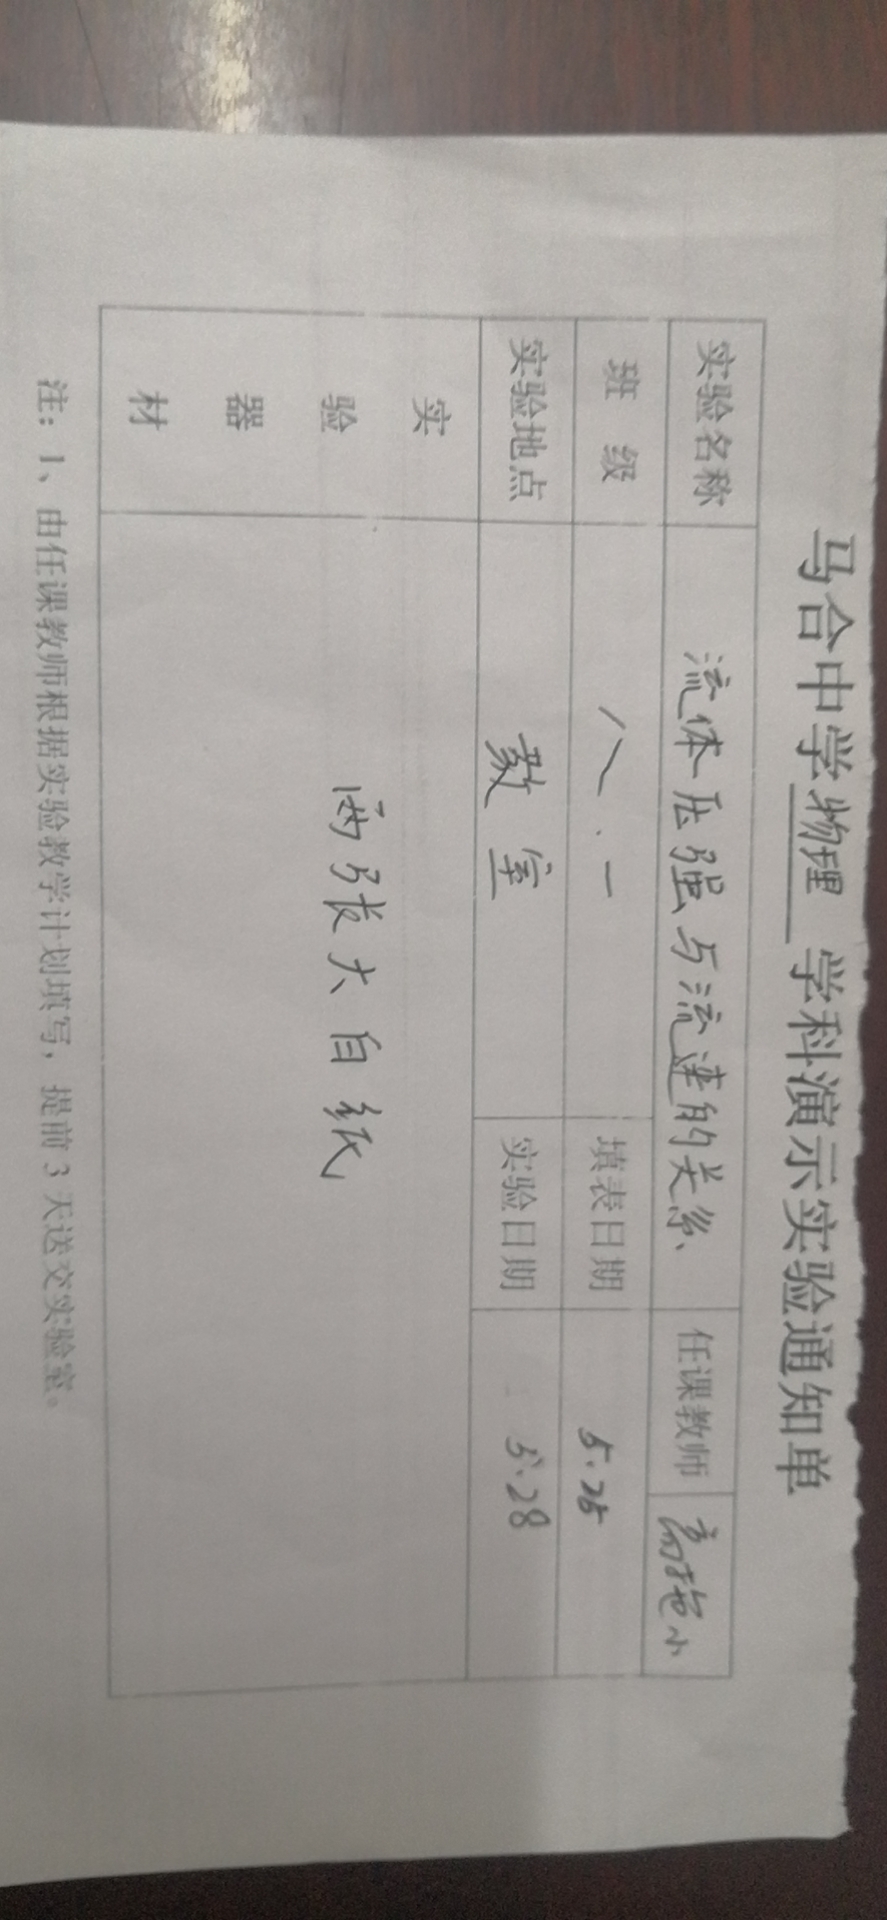 马合中学物理 学科演示实验通知单
实验名称 流体压强与流速的关系 任课教师
班 级 八.一 填表日期 5.25
实验地点 教室 实验日期 5.28
实验器材 两张大白纸
注：1、由任课教师根据实验教学计划填写，提前3天送交实验室。